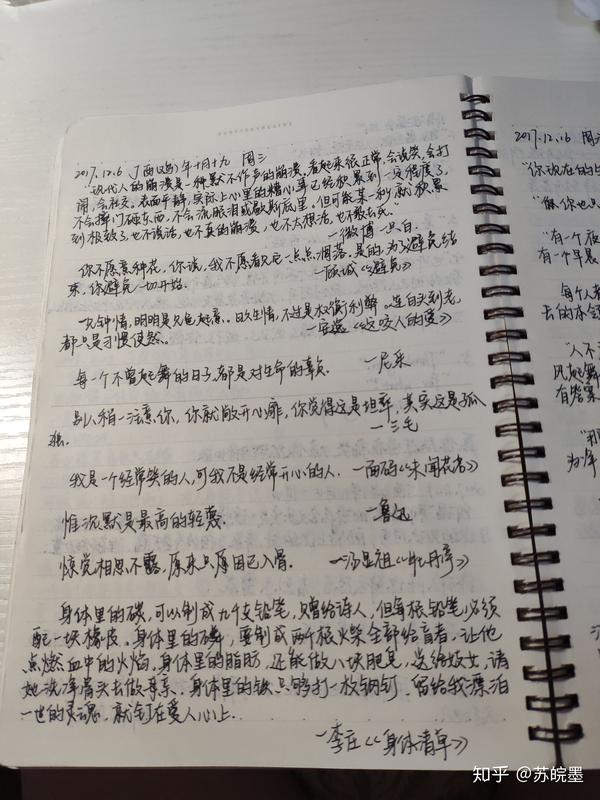 2017.12.6 丁酉(鸡)年十月十九 周三
"现代人的崩溃是一种默不作声的崩溃。看起来很正常,会说笑、会打
闹、会社交。表面平静,实际上心里的糟心事已经积累到一定程度了。
不会摔门砸东西,不会流眼泪或歇斯底里。但可能某一秒就积累
到极致了,也不说话,也不真的崩溃,也不太想活,也不敢去死。"
—微博
你不愿意种花,你说,我不愿看见它一点点凋落。是的,为了避免结
束,你避免一切开始。
—顾城《避免》
一见钟情,明明是见色起意。日久生情,不过是权衡利弊。连白头到老,
都只是习惯使然。
《这咬人的爱》
每一个不曾起舞的日子,都是对生命的辜负。 —尼采
别人稍一注意你,你就敞开心扉,你觉得这是坦率,其实这是孤
独。
—三毛
我是一个经常笑的人,可我不是经常开心的人。 —面码《未闻花名》
惟沉默是最高的轻蔑。 —鲁迅
惊觉相思不露,原来只因已入骨。 —汤显祖《牡丹亭》
身体里的碳,可以制成九千支铅笔,赠给诗人,但每根铅笔必须
配一块橡皮。身体里的磷,要制成两千根火柴全部给盲者,让他
点燃血中的火焰。身体里的脂肪,还能做八块肥皂,送给妓女,请
她洗净骨头去做母亲。身体里的铁只够打一枚钢钉,留给我漂泊
一世的灵魂,就钉在爱人心上。
—李庄《身体清单》
2017.12.6 周三
"你现在的生
"有个夜
有个早晨
每个人都
去的本
"人不
风起舞
有答案
为年
知乎 @苏皖墨